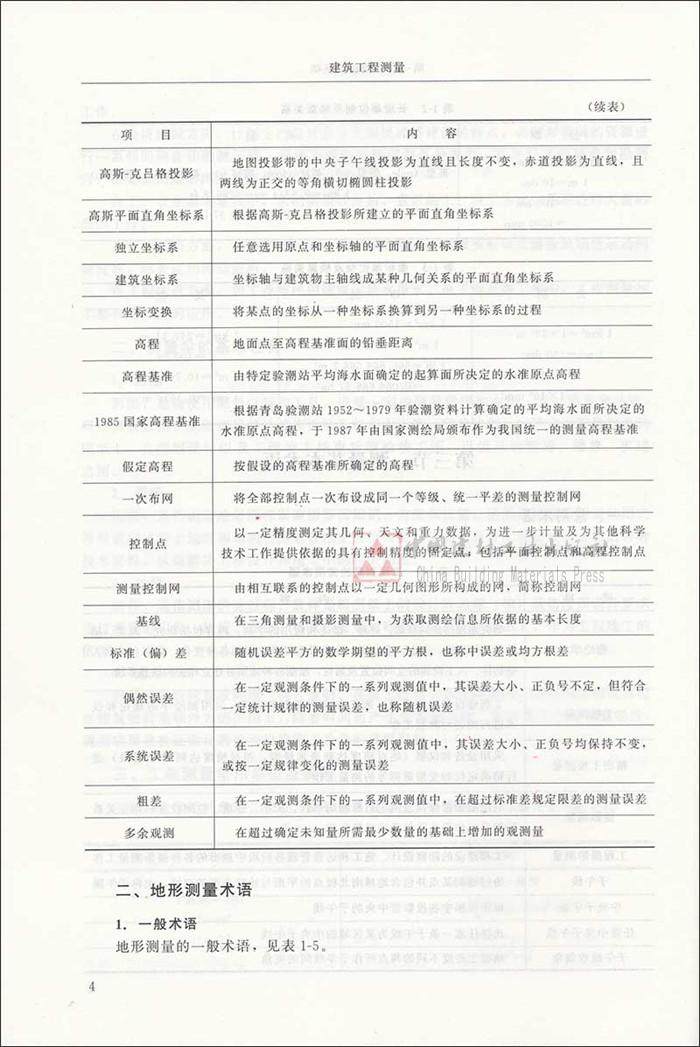 建筑工程测量
（续表）
项 目 内 容
高斯-克吕格投影 地图投影带的中央子午线投影为直线且长度不变，赤道投影为直线，且
两线为正交的等角横切椭圆柱投影
高斯平面直角坐标系 根据高斯-克吕格投影所建立的平面直角坐标系
独立坐标系 任意选用原点和坐标轴的平面直角坐标系
建筑坐标系 坐标轴与建筑物主轴线成某种几何关系的平面直角坐标系
坐标变换 将某点的坐标从一种坐标系换算到另一种坐标系的过程
高程 地面点至高程基准面的铅垂距离
高程基准 由特定验潮站平均海水面确定的起算面所决定的水准原点高程
1985 国家高程基准 根据青岛验潮站 1952～1979 年验潮资料计算确定的平均海水面所决定的
水准原点高程，于 1987 年由国家测绘局颁布作为我国统一的测量高程基准
假定高程 按假设的高程基准所确定的高程
一次布网 将全部控制点一次布设成同一个等级、统一平差的测量控制网
控制点 以一定精度测定其几何、天文和重力数据，为进一步计量及为其他科学
技术工作提供依据的具有控制精度的固定点，包括平面控制点和高程控制点
China Building Materials Press
测量控制网 由相互联系的控制点以一定几何图形所构成的网，简称控制网
基线 在三角测量和摄影测量中，为获取测绘信息所依据的基本长度
标准（偏）差 随机误差平方的数学期望的平方根，也称中误差或均方根差
偶然误差 在一定观测条件下的一系列观测值中，其误差大小、正负号不定，但符合
一定统计规律的测量误差，也称随机误差
系统误差 在一定观测条件下的一系列观测值中，其误差大小、正负号均保持不变，
或按一定规律变化的测量误差
粗差 在一定观测条件下的一系列观测值中，在超过标准差规定限差的测量误差
多余观测 在超过确定未知量所需最少数量的基础上增加的观测量
二、地形测量术语
1．一般术语
地形测量的一般术语，见表 1-5。
4